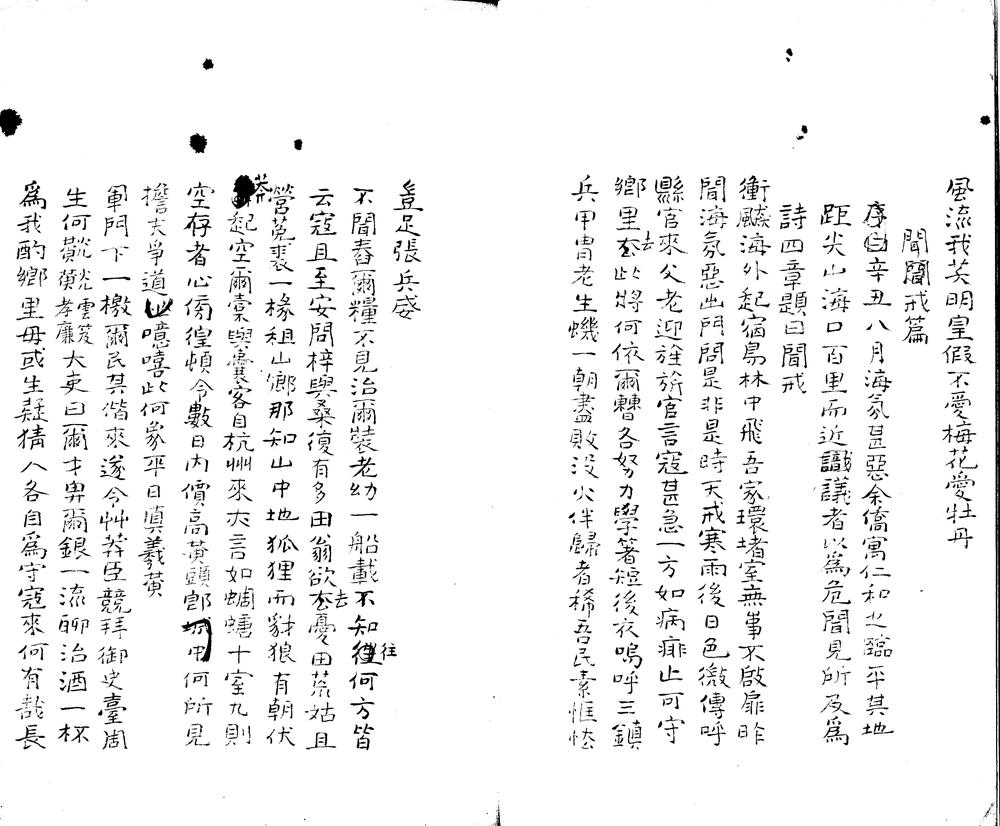 風流我笑明皇假不愛梅花愛牡丹
聞戒篇
序曰辛丑八月海氛甚惡余僑寓仁和之臨平其地
距尖山海口百里而近識議者以為危聞見所及為
詩四章題曰聞戒
衝飇海外起宿鳥林中飛吾家環堵室無事不啟扉昨
聞海氛惡出門問是非是時天戒寒雨後日色微傳呼
縣官來父老迎旌旂官言寇甚急一方如病痱止可守
鄉里去此將何依爾曹各努力學著短後衣嗚呼三鎮
兵甲冑老生蟣一朝盡敗没火伴歸者稀吾民素恇怯
豈足張兵威
不聞舂爾糧不見治爾裝老幼一船載不知往何方皆
云寇且至安問梓與桑復有多田翁欲去憂田荒姑且
營菟裘一椽租山鄉那知山中地狐狸而豺狼有朝伏
莽起空爾橐與囊客自杭州來亦言如蜩螗十室九則
空存者心徬徨頓令數日内價高黄頭郎城中何所見
擔夫爭道噫嘻此何象平日真羲黄
軍門下一檄爾民其偕來遂令艸莽臣競拜御史臺周
生何煢煢大吏曰爾才畀爾銀一流聊治酒一杯
雲笈黄孝廉
為我酌鄉里毋或生疑猜人各自為守寇來何有哉長